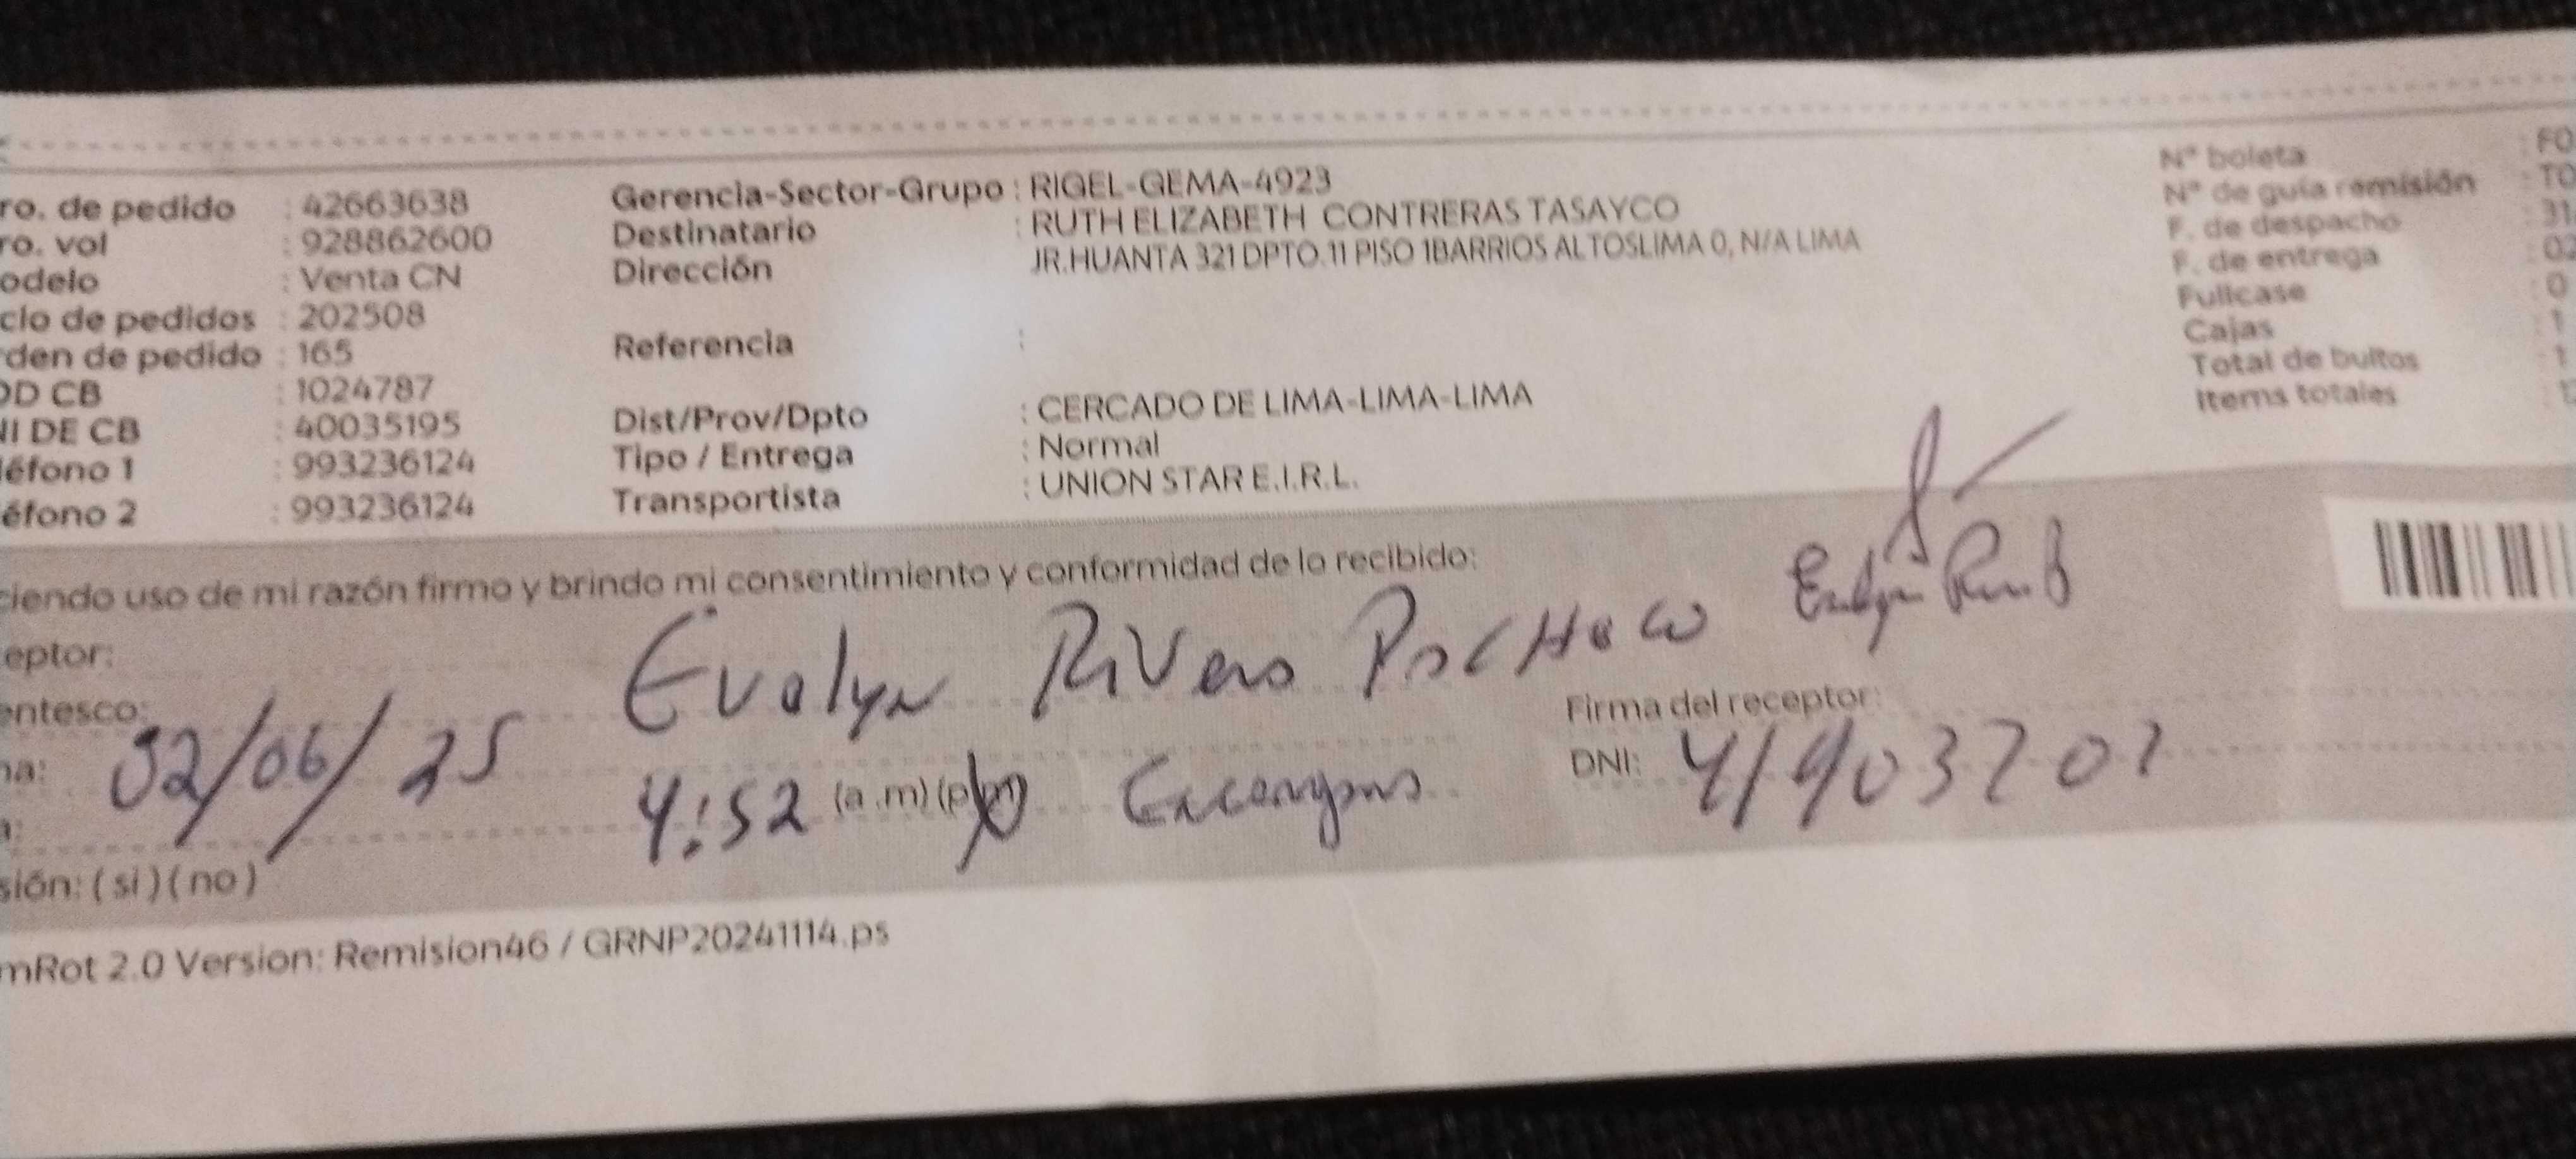 ro. de pedido : 42663638
ro. vol : 928862600
odelo : Venta CN
clo de pedidos : 202508
rden de pedido : 165
OD CB : 1024787
NI DE CB : 40035195
léfono 1 : 993236124
éfono 2 : 993236124
Gerencia-Sector-Grupo : RIGEL-GEMA-4923
Destinatario : RUTH ELIZABETH CONTRERAS TASAYCO
Dirección JR.HUANTA 321 DPTO.11 PISO 1BARRIOS ALTOSLIMA 0, N/A LIMA
Referencia :
Dist/Prov/Dpto : CERCADO DE LIMA-LIMA-LIMA
Tipo / Entrega : Normal
Transportista : UNION STAR E.I.R.L.
N° boleta : FO
N° de guía remisión : TO
F. de despacho : 31
F. de entrega : 02
Fullcase : 0
Cajas : 1
Total de bultos : 1
Items totales : 1
ciendo uso de mi razón firmo y brindo mi consentimiento y conformidad de lo recibido:
eptor: Evelyn Rivers
entesco:
na: 02/06/25
4:52 (a.m) (p.m)
Firma del receptor:
DNI:
sión: ( si ) ( no )
mRot 2.0 Version: Remision46 / GRNP20241114.ps